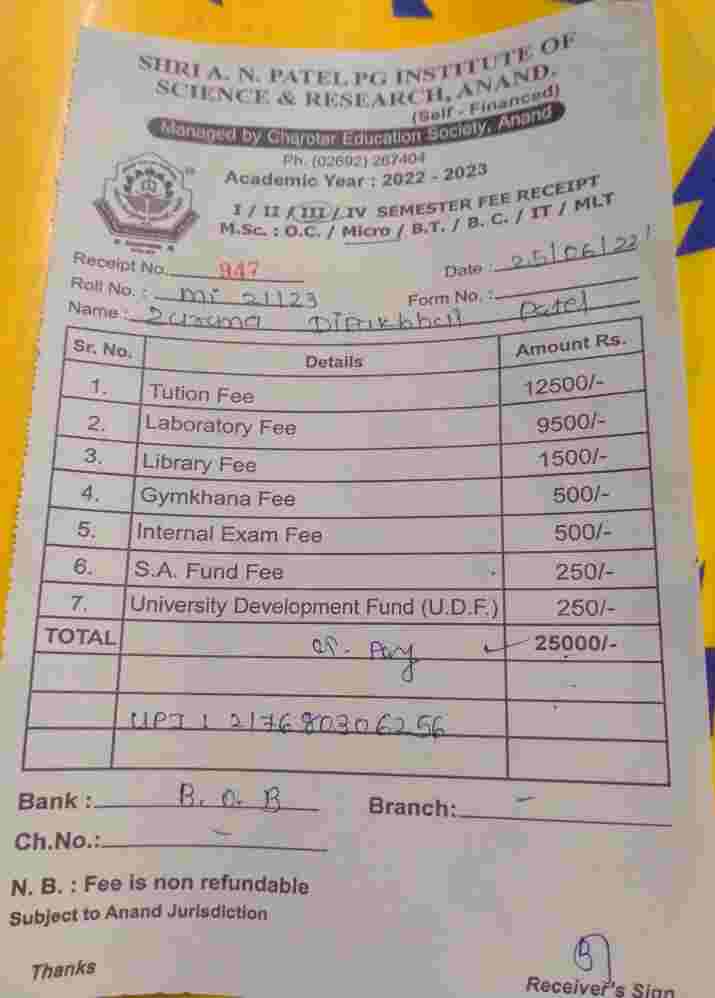 SHRI A. N. PATEL PG INSTITUTE OF
SCIENCE & RESEARCH, ANAND.
(Self - Financed)
Managed by Charotar Education Society, Anand
Ph. (02692) 267404
Academic Year : 2022 - 2023
I / II / III / IV SEMESTER FEE RECEIPT
M.Sc. : O.C. / Micro / B.T. / B. C. / IT / MLT
Receipt No. 947
Date : 25/06/22
Roll No. : mi 21123
Form No. :
Name : Dipakbhai Patel
Sr. No. Details Amount Rs.
1. Tution Fee 12500/-
2. Laboratory Fee 9500/-
3. Library Fee 1500/-
4. Gymkhana Fee 500/-
5. Internal Exam Fee 500/-
6. S.A. Fund Fee 250/-
7. University Development Fund (U.D.F.) 250/-
TOTAL Pay 25000/-
UPI 217680306256
Bank : B. O. B Branch: -
Ch.No.: -
N. B. : Fee is non refundable
Subject to Anand Jurisdiction
Thanks
Receiver's Sign